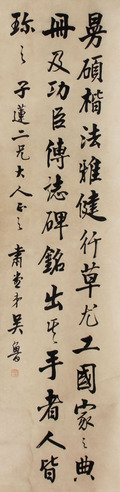 勗碩楷法雅健行草尤工國家之典
冊及功臣傳誌碑銘出其手者人皆
珍之子蓮二兄大人正之肅堂弟吳魯